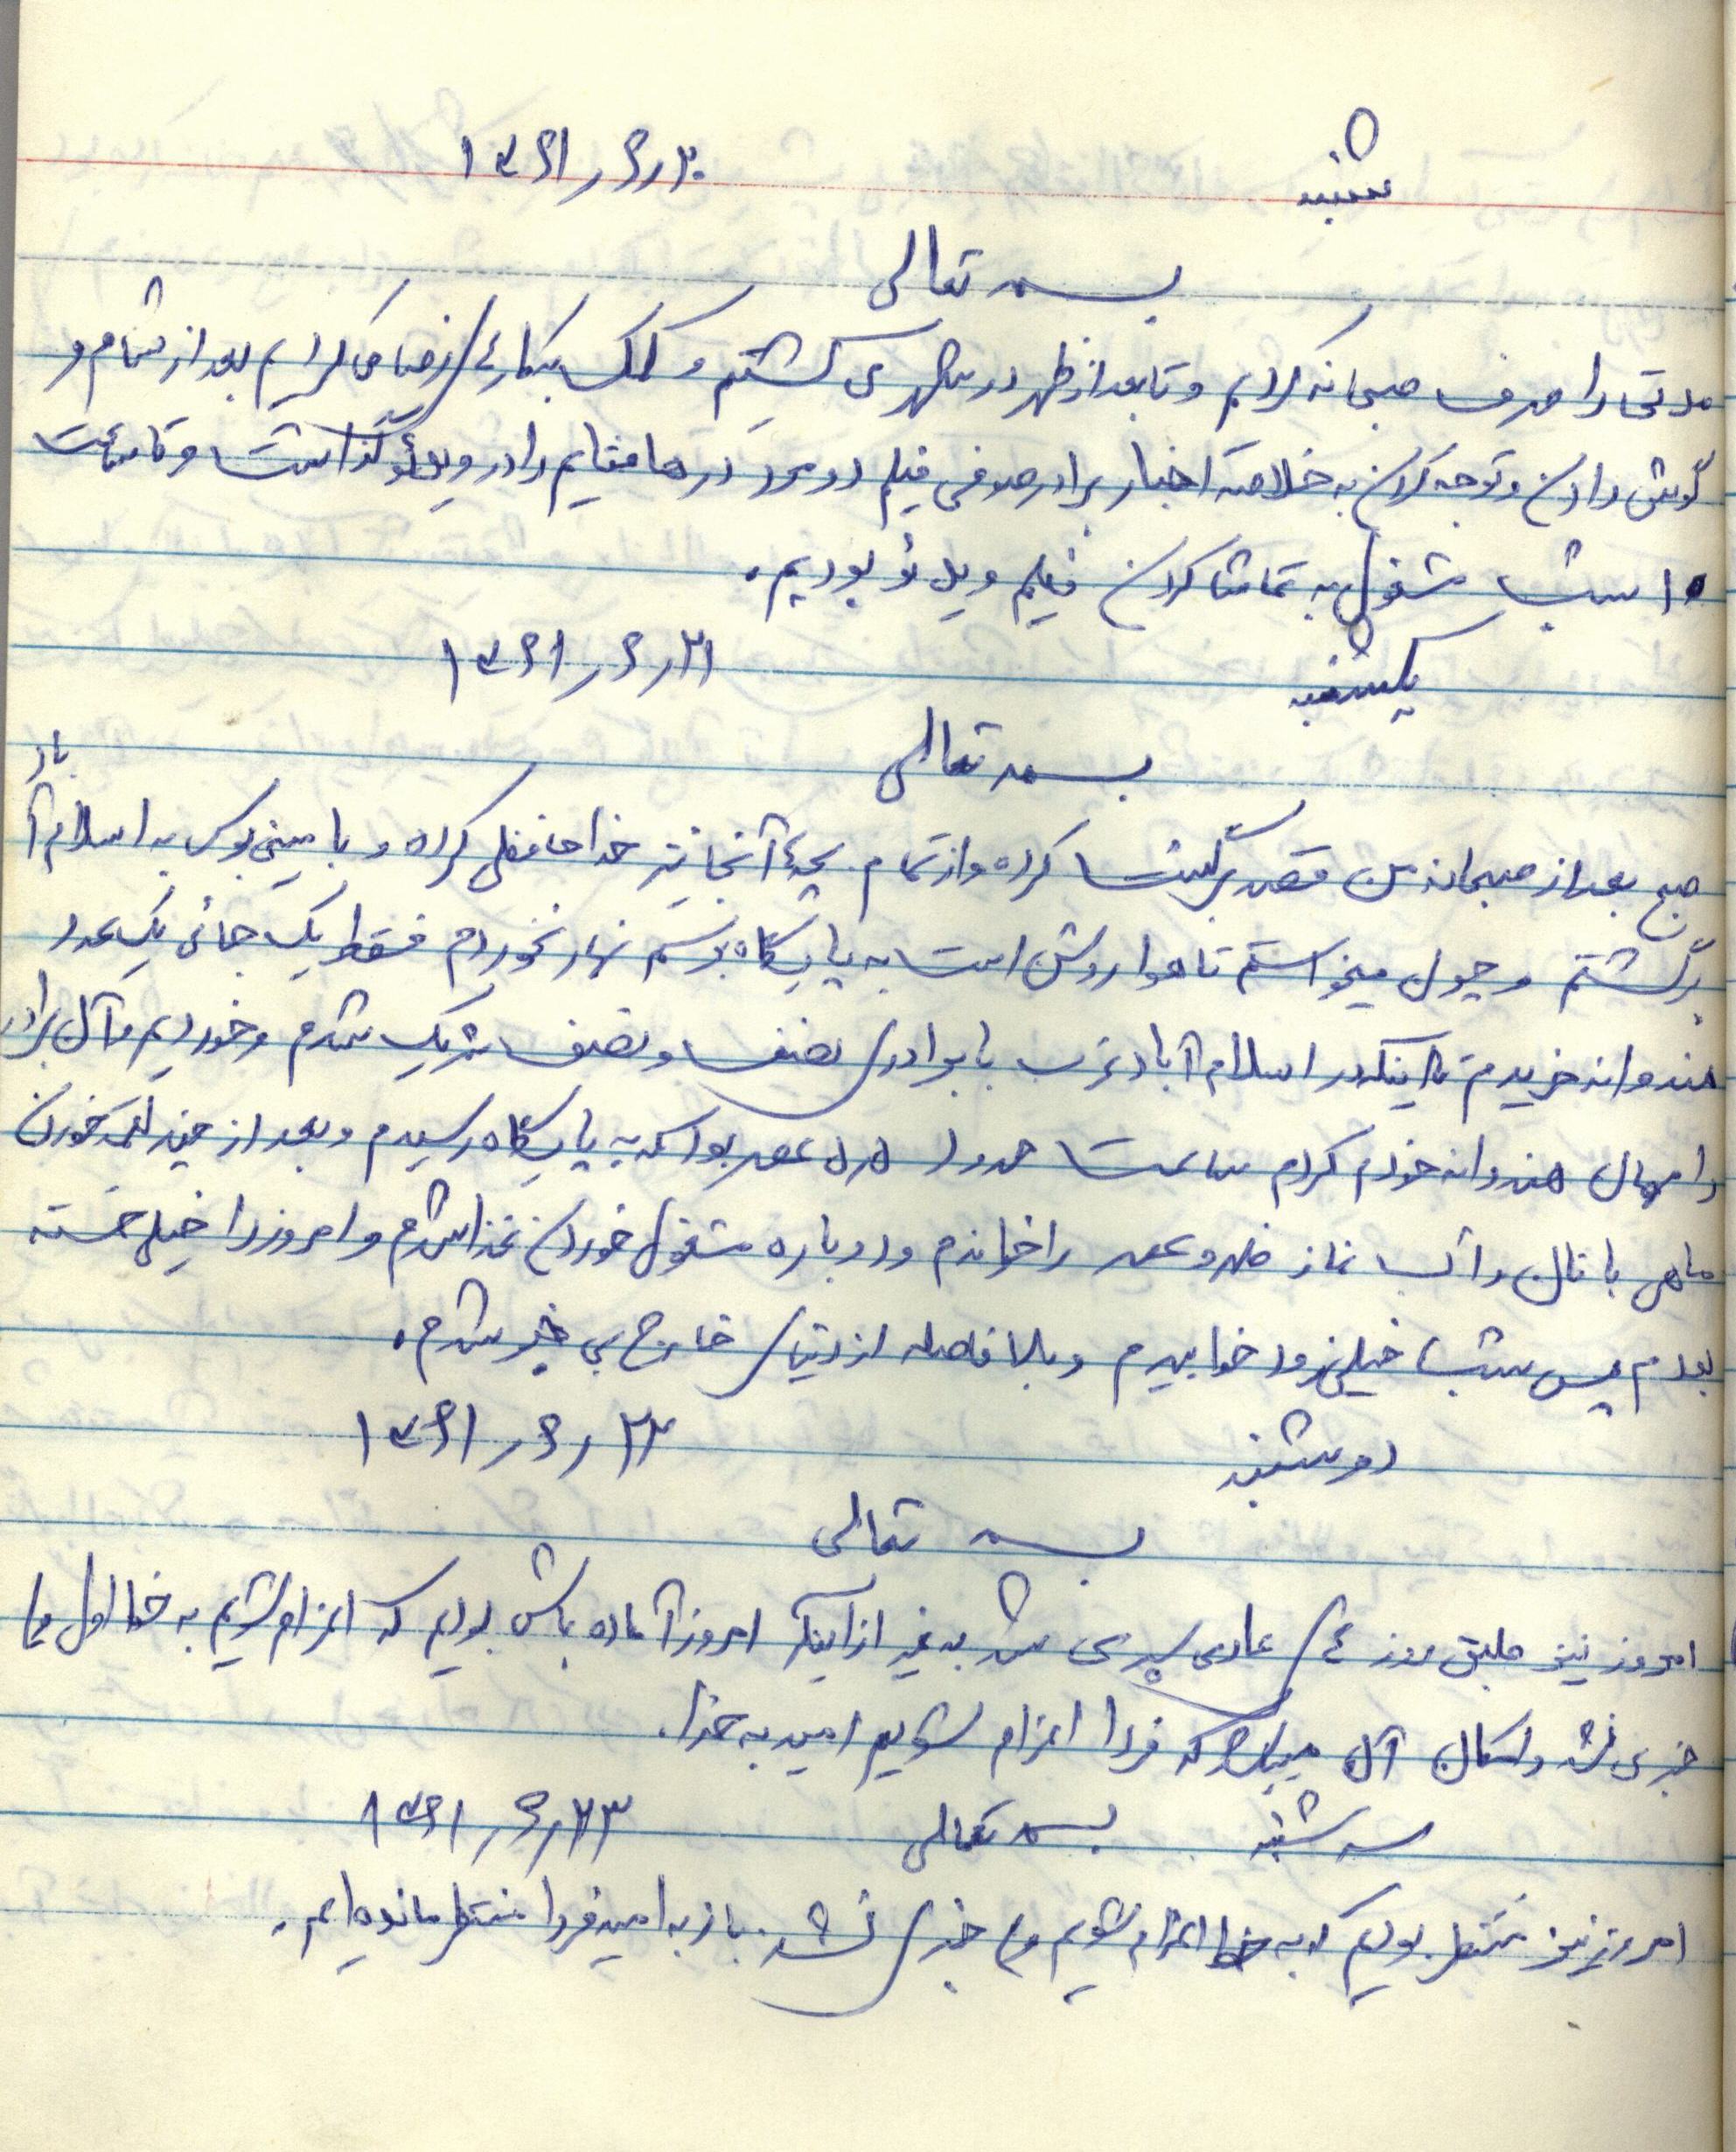 شنبه ۱۳۶۱/۶/۲۰
بسمه تعالی
مدتی را صرف صبحانه کردیم و تا بعداز ظهر در شهر می گشتیم و کلک بیکاری را می کردیم بعد از شام و
گوش دادن و توجه کردن به خلاصه اخبار برادر صدفی فیلم دو مرد در مقابلیم را در ویدئو گذاشت و تا ساعت
۱۰ شب مشغول به تماشا کردن فیلم ویدئو بودیم.
یکشنبه ۱۳۶۱/۶/۲۱
بسمه تعالی
صبح بعد از صبحانه من قصد برگشت کرده و از تمام بچه‌های آنجا نیز خداحافظی کرده و با مینی بوس به اسلام آباد
برگشتم و چون میخواستم تا هوا روشن است به پایگاه برسم نهار نخوردم فقط یک جائی یک عدد
هندوانه خریدم تا اینکه در اسلام آباد غرب با برادری نصف و نصف شریک شدم و خوردیم و آن برادر
را مهمان هندوانه خودم کردم ساعت حدود ۵/۵ عصر بود که به پایگاه رسیدم و بعد از چند لقمه خوردن
ماهی با نان و آب نماز ظهر و عصر را خواندم و دوباره مشغول خوردن غذا شدم و امروز را خیلی خسته
بودم پس شب خیلی زود خوابیدم و بلافاصله از دنیای خارج بی خبر شدم.
دوشنبه ۱۳۶۱/۶/۲۲
بسمه تعالی
امروز نیز طبق روزهای عادی سپری شد به غیر از اینکه امروز آماده باش بودیم که اعزام شویم به خط اول اما
خبری نشد و امکان آن میباشد که فردا اعزام شویم امید به خدا.
سه شنبه بسمه تعالی ۱۳۶۱/۶/۲۳
امروز نیز منتظر بودیم که به خط اعزام شویم ولی خبری نشد. باز به امید فردا منتظر مانده‌ایم.